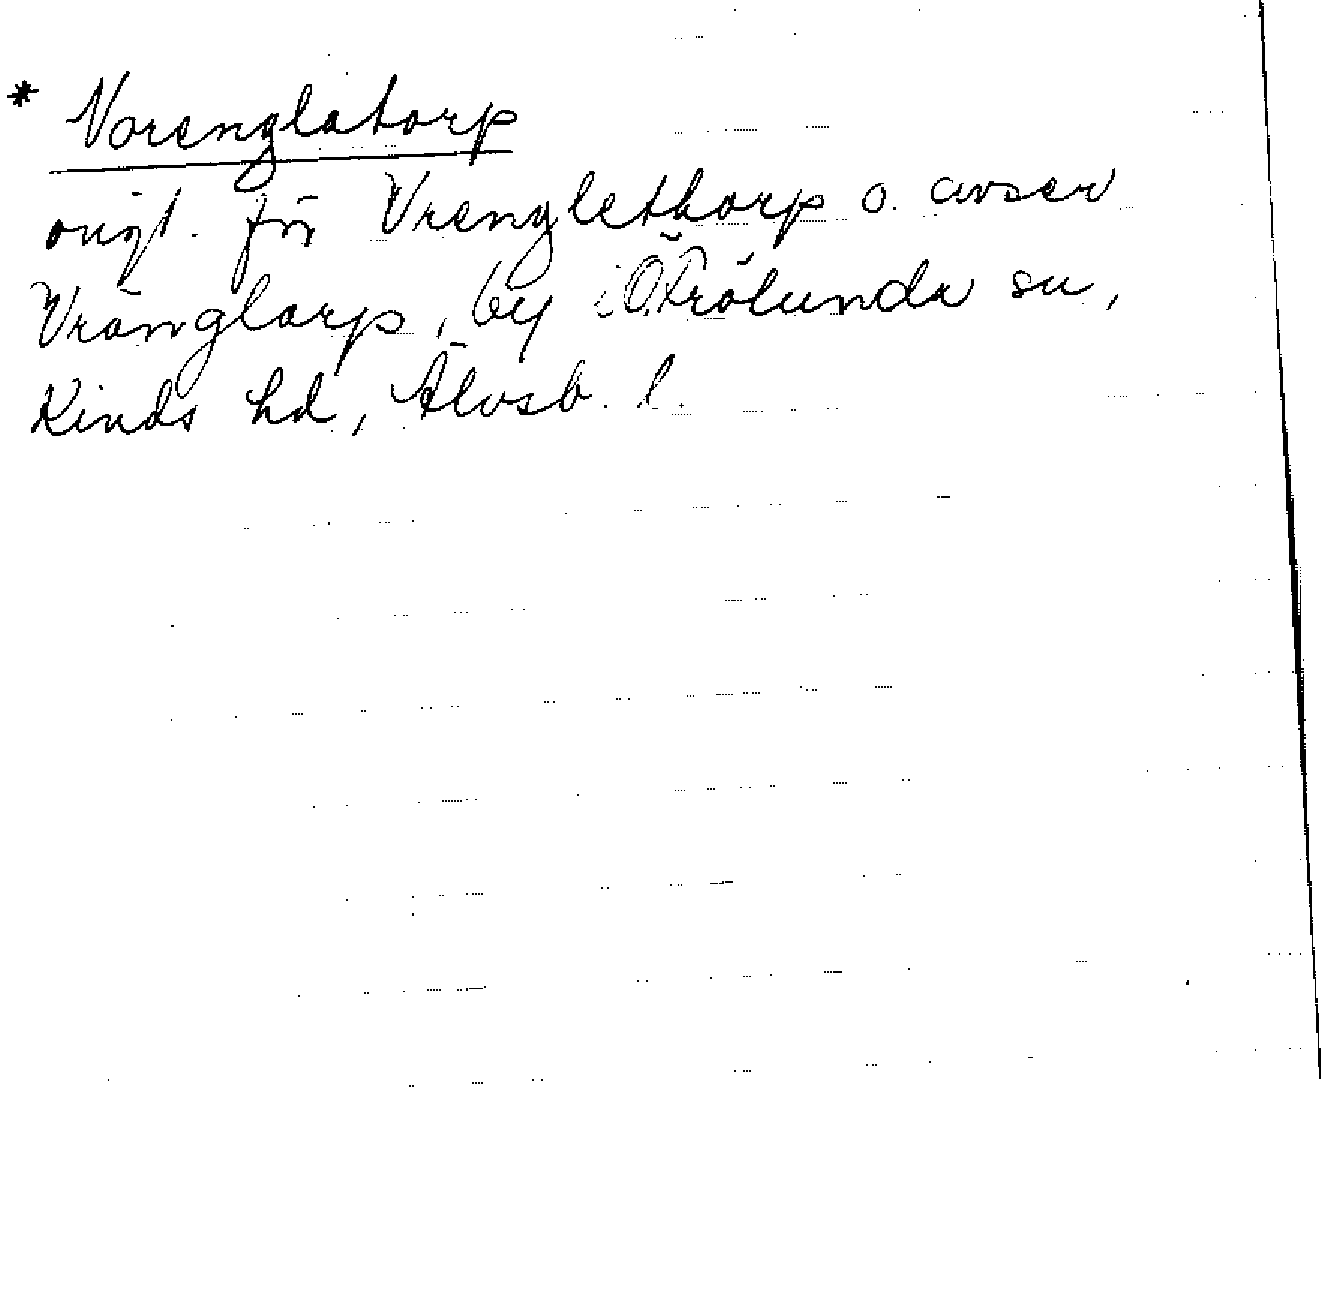 * Vorenglatorp
origt. för Vrenglethorp o. avser
Vränglarp, by i Ö Frölunda sn,
Kinds hd, Älvsb. l.